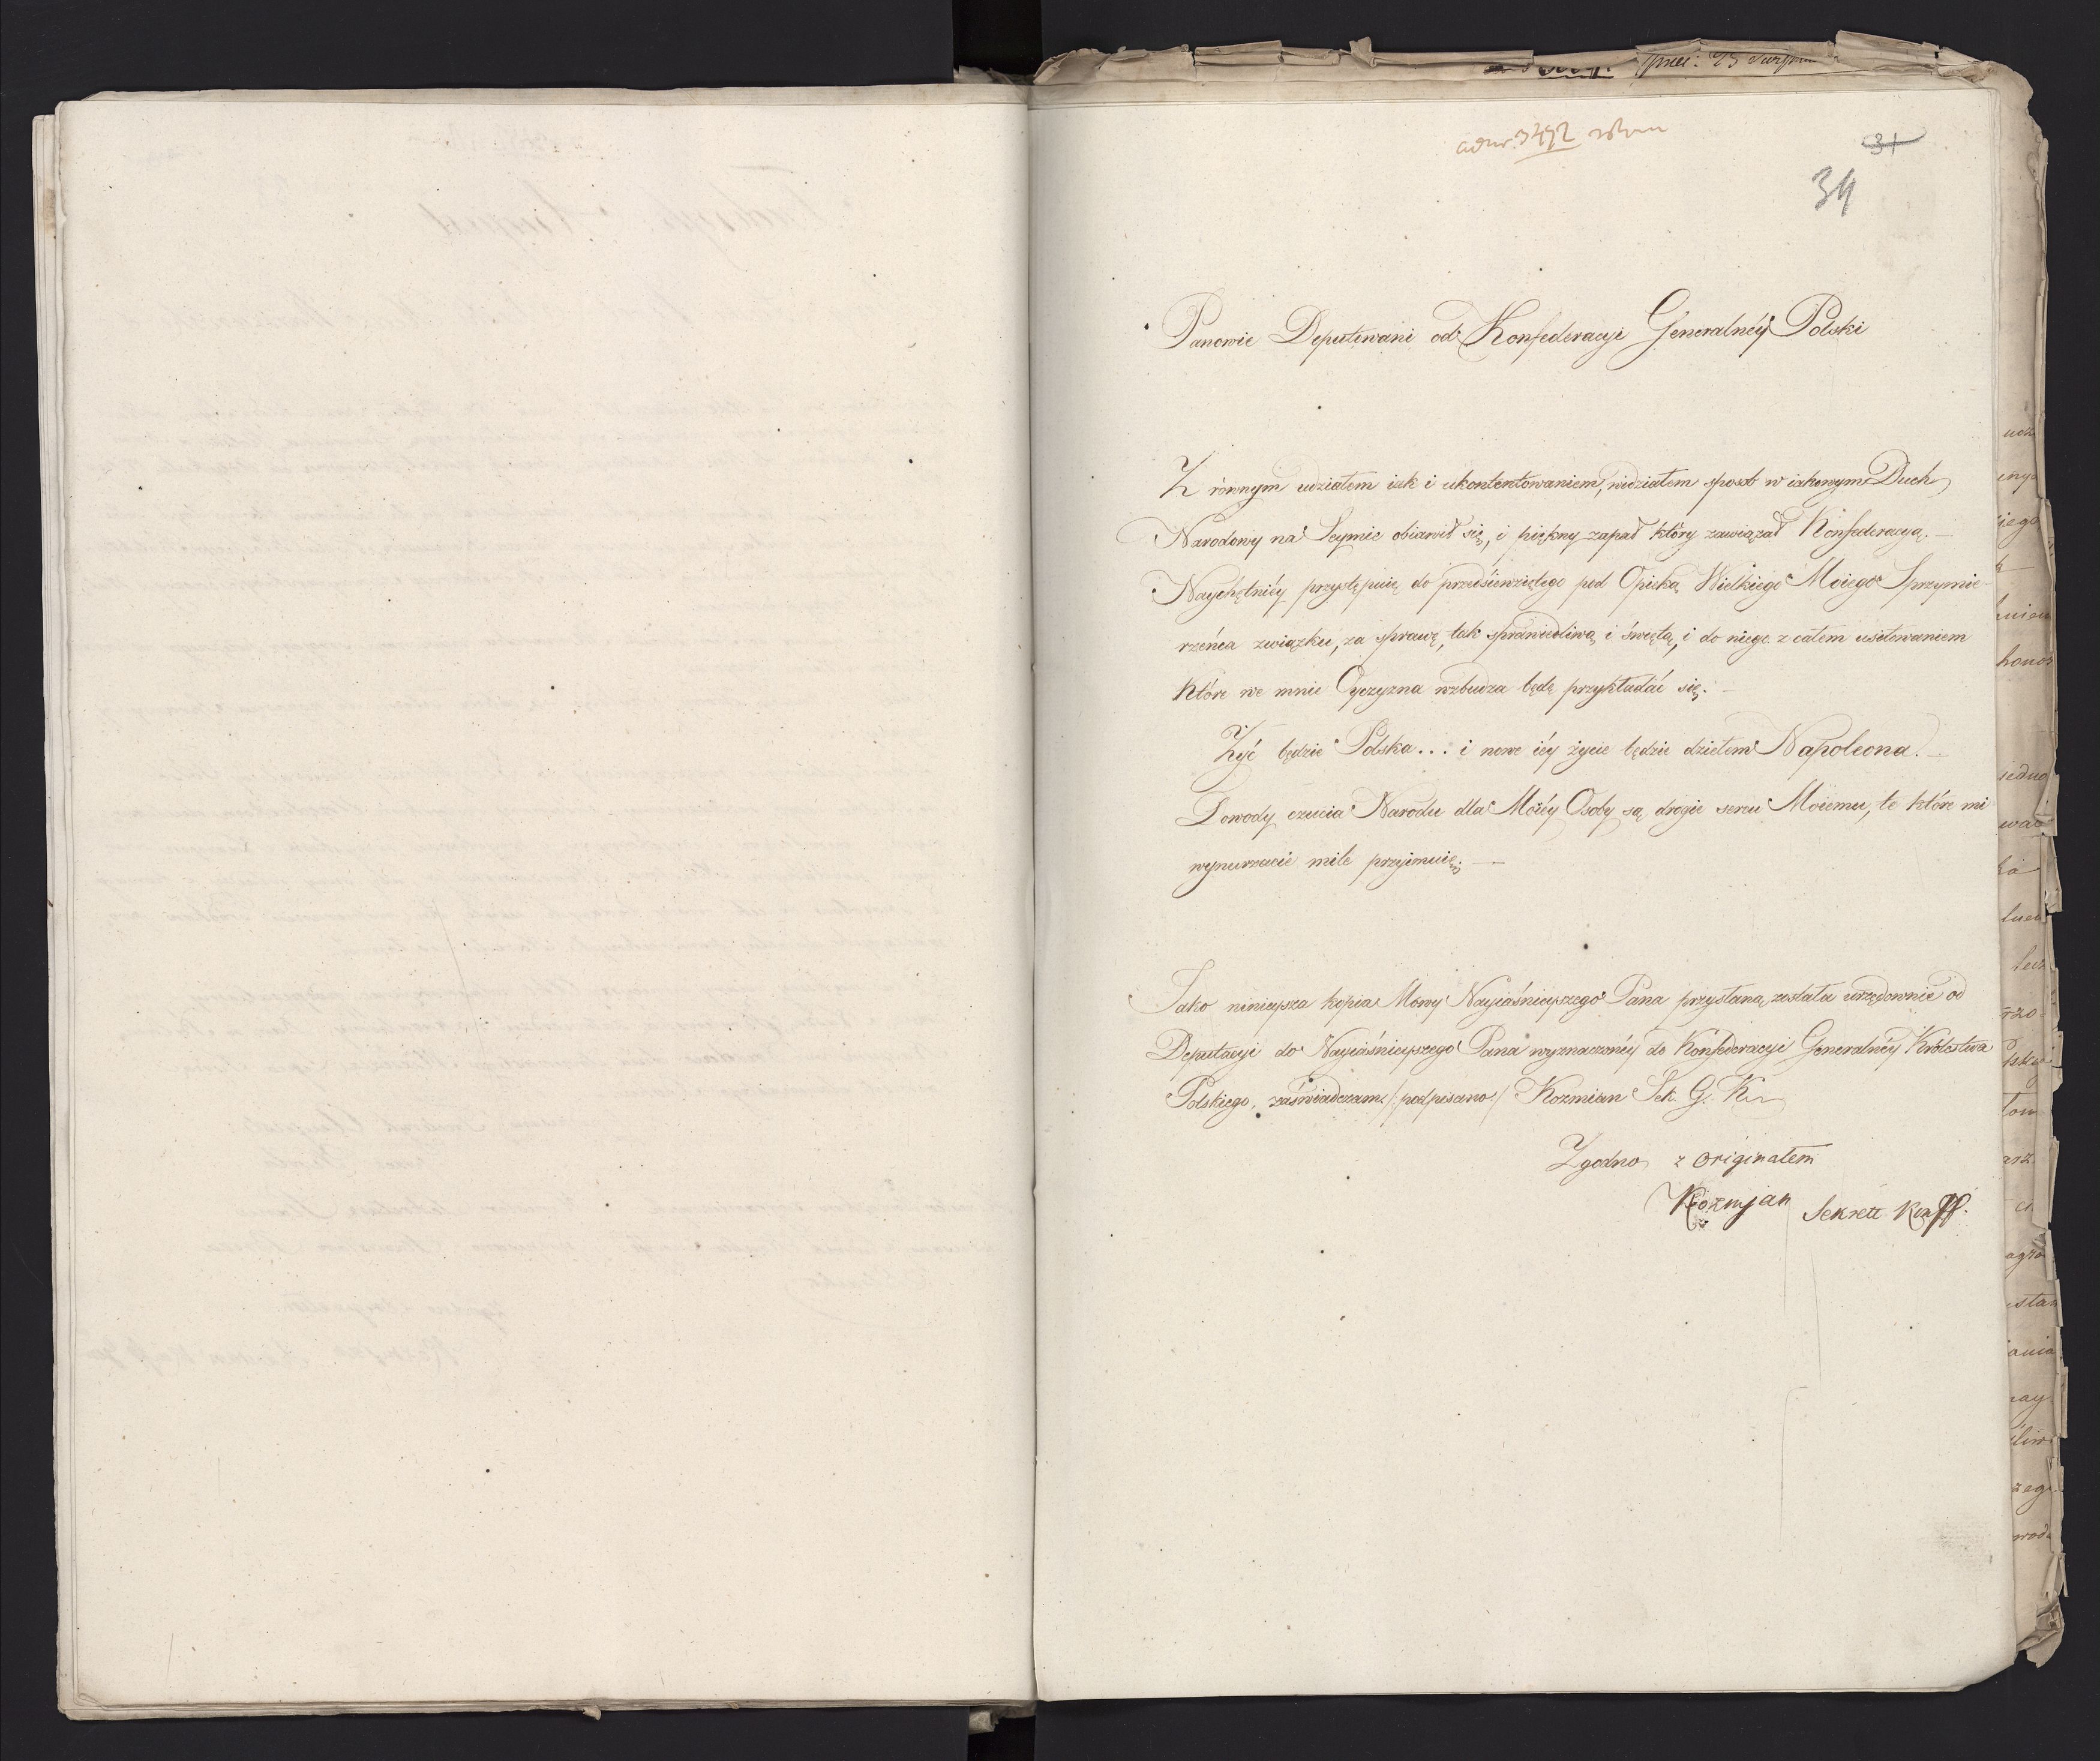 3472
31
34
Panowie Deputowani od Konfederacyi Generalnéy Polski
Z równym udziałem iak i ukontentowaniem, widziałem sposób w iakowym Duch
Narodowy na Seymie obiawił się, i piękny zapał który zawiązał Konfederacyą. —
Naychętniéy przystępuię do przedsięwziętego pod Opieką Wielkiego Moiego Sprzymie-
rzeńca związku, za sprawę, tak sprawiedliwą i świętą, i do niego z całem usiłowaniem
które we mnie Oyczyzna wzbudza będę przykładać się. —
Żyć będzie Polska... i nowe iéy życie będzie dziełem Napoleona. —
Dowody czucia Narodu dla Moiéy Osoby są drogie sercu Moiemu, te które mi
wynurzacie mile przyimuię. —
Jako ninieysza kopia Mowy Nayiaśnieyszego Pana przysłaną została urzędownie od
Deputacyi do Nayiaśnieyszego Pana wyznaczonéy do Konfederacyi Generalnéy Królestwa
Polskiego, zaświadczam /: podpisano :/ Kozmian Sek. G. K.
Zgodno z Originałem
Kozmjan Sekrett Konff.